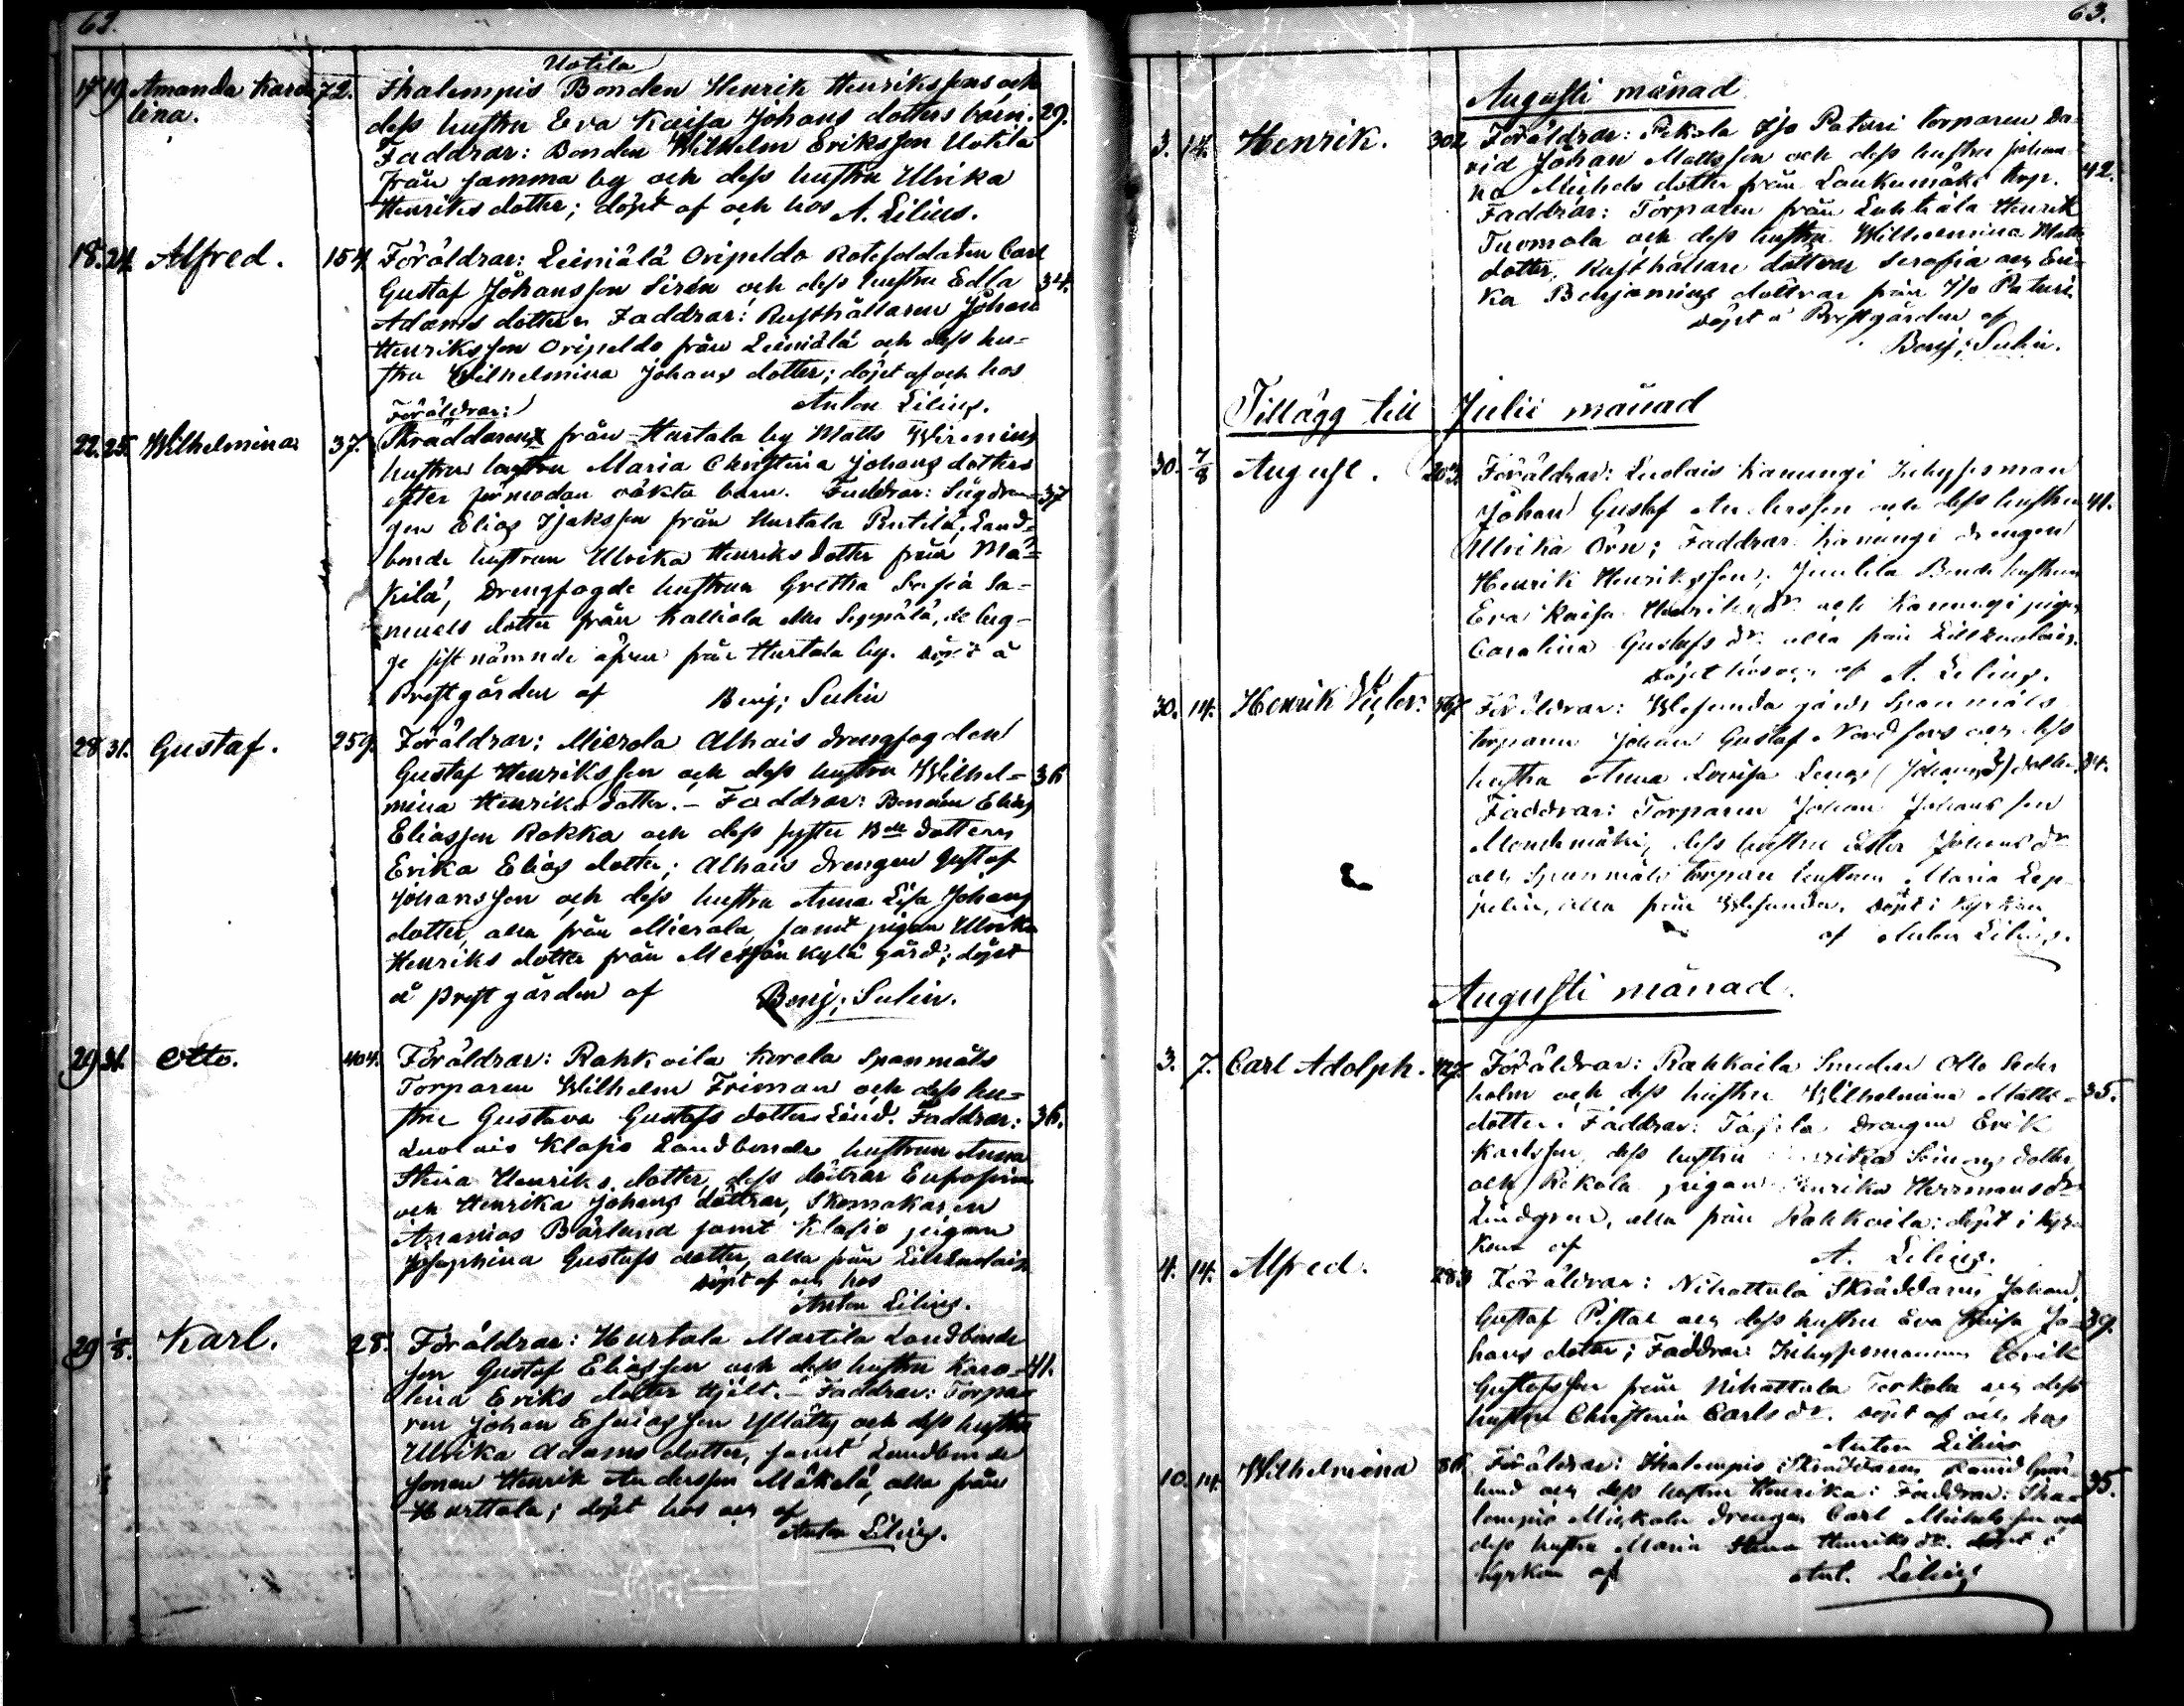 62.
Uotila
17 19 Amanda Karo- 72. Ihalempis Bonden Henrik Henriksson och
lina. dess hustru Eva Kaisa Johans dotters barn. 29.
Faddrar: Bonden Wilhelm Eriksson Uotila
från samma by och dess hustru Ulrika
Henriks dotter; döpt af och hos A. Lilius.
18. 24. Alfred. 154 Föräldrar: Leiniälä Oripeldo Rotesoldaten Carl
Gustaf Johansson Sirén och dess hustru Edla 34.
Adams dotter. Faddrar: Rusthållaren Johan
Henriksson Oripeldo från Leiniälä och dess hu-
stru Wilhelmina Johans dotter; döpt af och hos
Anton Lilius.
Föräldrar:
22. 25. Wilhelmina 37. Skräddaren från Hurtala by Matts
hustrun Maria Christina Johans dotters
efter förmodan oäkta barn. Faddrar: 37
gen Elias Isaksson från Hurtala Pentilä, Land-
bonde hustrun Ulrika Henriks dotter från Mä-
kilä, Drengfogde hustrun Gretha Sofia Sa-
muels dotter från Kalliola eller Seppälä, de beg-
ge sist nämnde äfven från Hurtala by. Döpt å
Prestgården af Benj. Sulin
28 31. Gustaf. 259. Föräldrar: Mierola Alhais drengfogden
Gustaf Henriksson och dess hustru Wilhel- 36
mina Henriks dotter. – Faddrar: Elias
Eliasson Rokka och dess syster dottern
Erika Elias dotter; Alhais drengen Gustaf
Johansson och dess hustru Anna Lisa Johans
dotter, alla från Mierola, samt pigan Ulrika
Henriks dotter från Metsänkylä gård; döpt
å prestgården af Benj. Sulin.
29 31. Otto. 404. Föräldrar: Rahkoila Korela Spanmåls
Torparen Wilhelm Friman och dess hu-
stru Gustava Gustafs dotter Lind. Faddrar: 36.
Luolais Klapio Landbonde hustrun Anna
Stina Henriks dotter, dess döttrar
och Henrika Johans döttrar, Skomakaren
Bärlund samt Klapio pigan
Josephina Gustafs dotter, alla från
Döpt af och hos
Anton Lilius.
29 1/8. Karl. 28. Föräldrar: Hurtala Martila Landbonde
son Gustaf Eliasson och dess hustru Karo- 41.
lina Eriks dotter Hjelt. – Faddrar: Torpa-
ren Johan Esaiasson och dess hustru
Ulrika Adams dotter, samt Landbonde
sonen Henrik Andersson Mäkelä, alla från
Hurttala; döpt hos och af
Anton Lilius.
63.
Augusti månad
3. 14. Henrik. 302 Föräldrar: Pekola Iso Paturi torparen Da-
vid Johan Mattsson och dess hustru Johan-
na Michels dotter från torp. 42.
Faddrar: Torparen från Luhtiala Henrik
Tuomola och dess hustru Wilhelmina Matts
dotter, Rusthållare döttrar Serafia och Eri-
ka Benjamins döttrar från Iso Paturi
Döpt å Prestgården af
Benj. Sulin.
Tillägg till Julii månad
30. 7/8 August. 203 Föräldrar: Luolais Kanungi Inhysesman
Johan Gustaf Andersson och dess hustru 41.
Ulrika Örn; Faddrar: Kanungi drengen
Henrik Henriksson, Juntila Bonde hustrun
Eva Kaisa Henriks dr. och Kanungi pigan
Carolina Gustafs dr. alla från
Döpt hos och af A. Lilius.
30. 14. Henrik Victor. Föräldrar: gårds Spanmåls
torparen Johan Gustaf Nordfors och dess
hustru Anna Lovisa (Johans) dotter. 34.
Faddrar: Torparen Johan Johansson
dess hustru Ester Johans dr
och Spanmåls torpare hustrun Maria Lep-
alla från Döpt i kyrkan
af Anton Lilius.
Augusti månad.
3. 7. Carl Adolph. 427. Föräldrar: Rahkoila Smeden Otto Seder
holm och dess hustru Wilhelmina Matts- 35.
dotter; Faddrar: drengen Erik
Karlsson, dess hustru dotter,
och Pekola pigan Henrika Hermans dr
Lindgren, alla från Rahkoila: döpt i kyr-
kan af A. Lilius.
4. 14. Alfred. 283 Föräldrar: Nihattula Skräddaren Johan
Gustaf och dess hustru Eva Kaisa Jo- 39.
hans dotter; Faddrar: Inhysesmannen Henrik
Gustafsson från Nihattula Torkola och dess
hustru Christina Carls dr. Döpt af och hos
Anton Lilius
10. 14. Wilhelmina Föräldrar: Ihalempis Skräddaren
lund och dess hustru Henrika; Faddrar: Iha- 35.
lempis drengen Carl Michelsson och
dess hustru Maria Stina Henriks dr. döpt i
kyrkan af Ant. Lilius